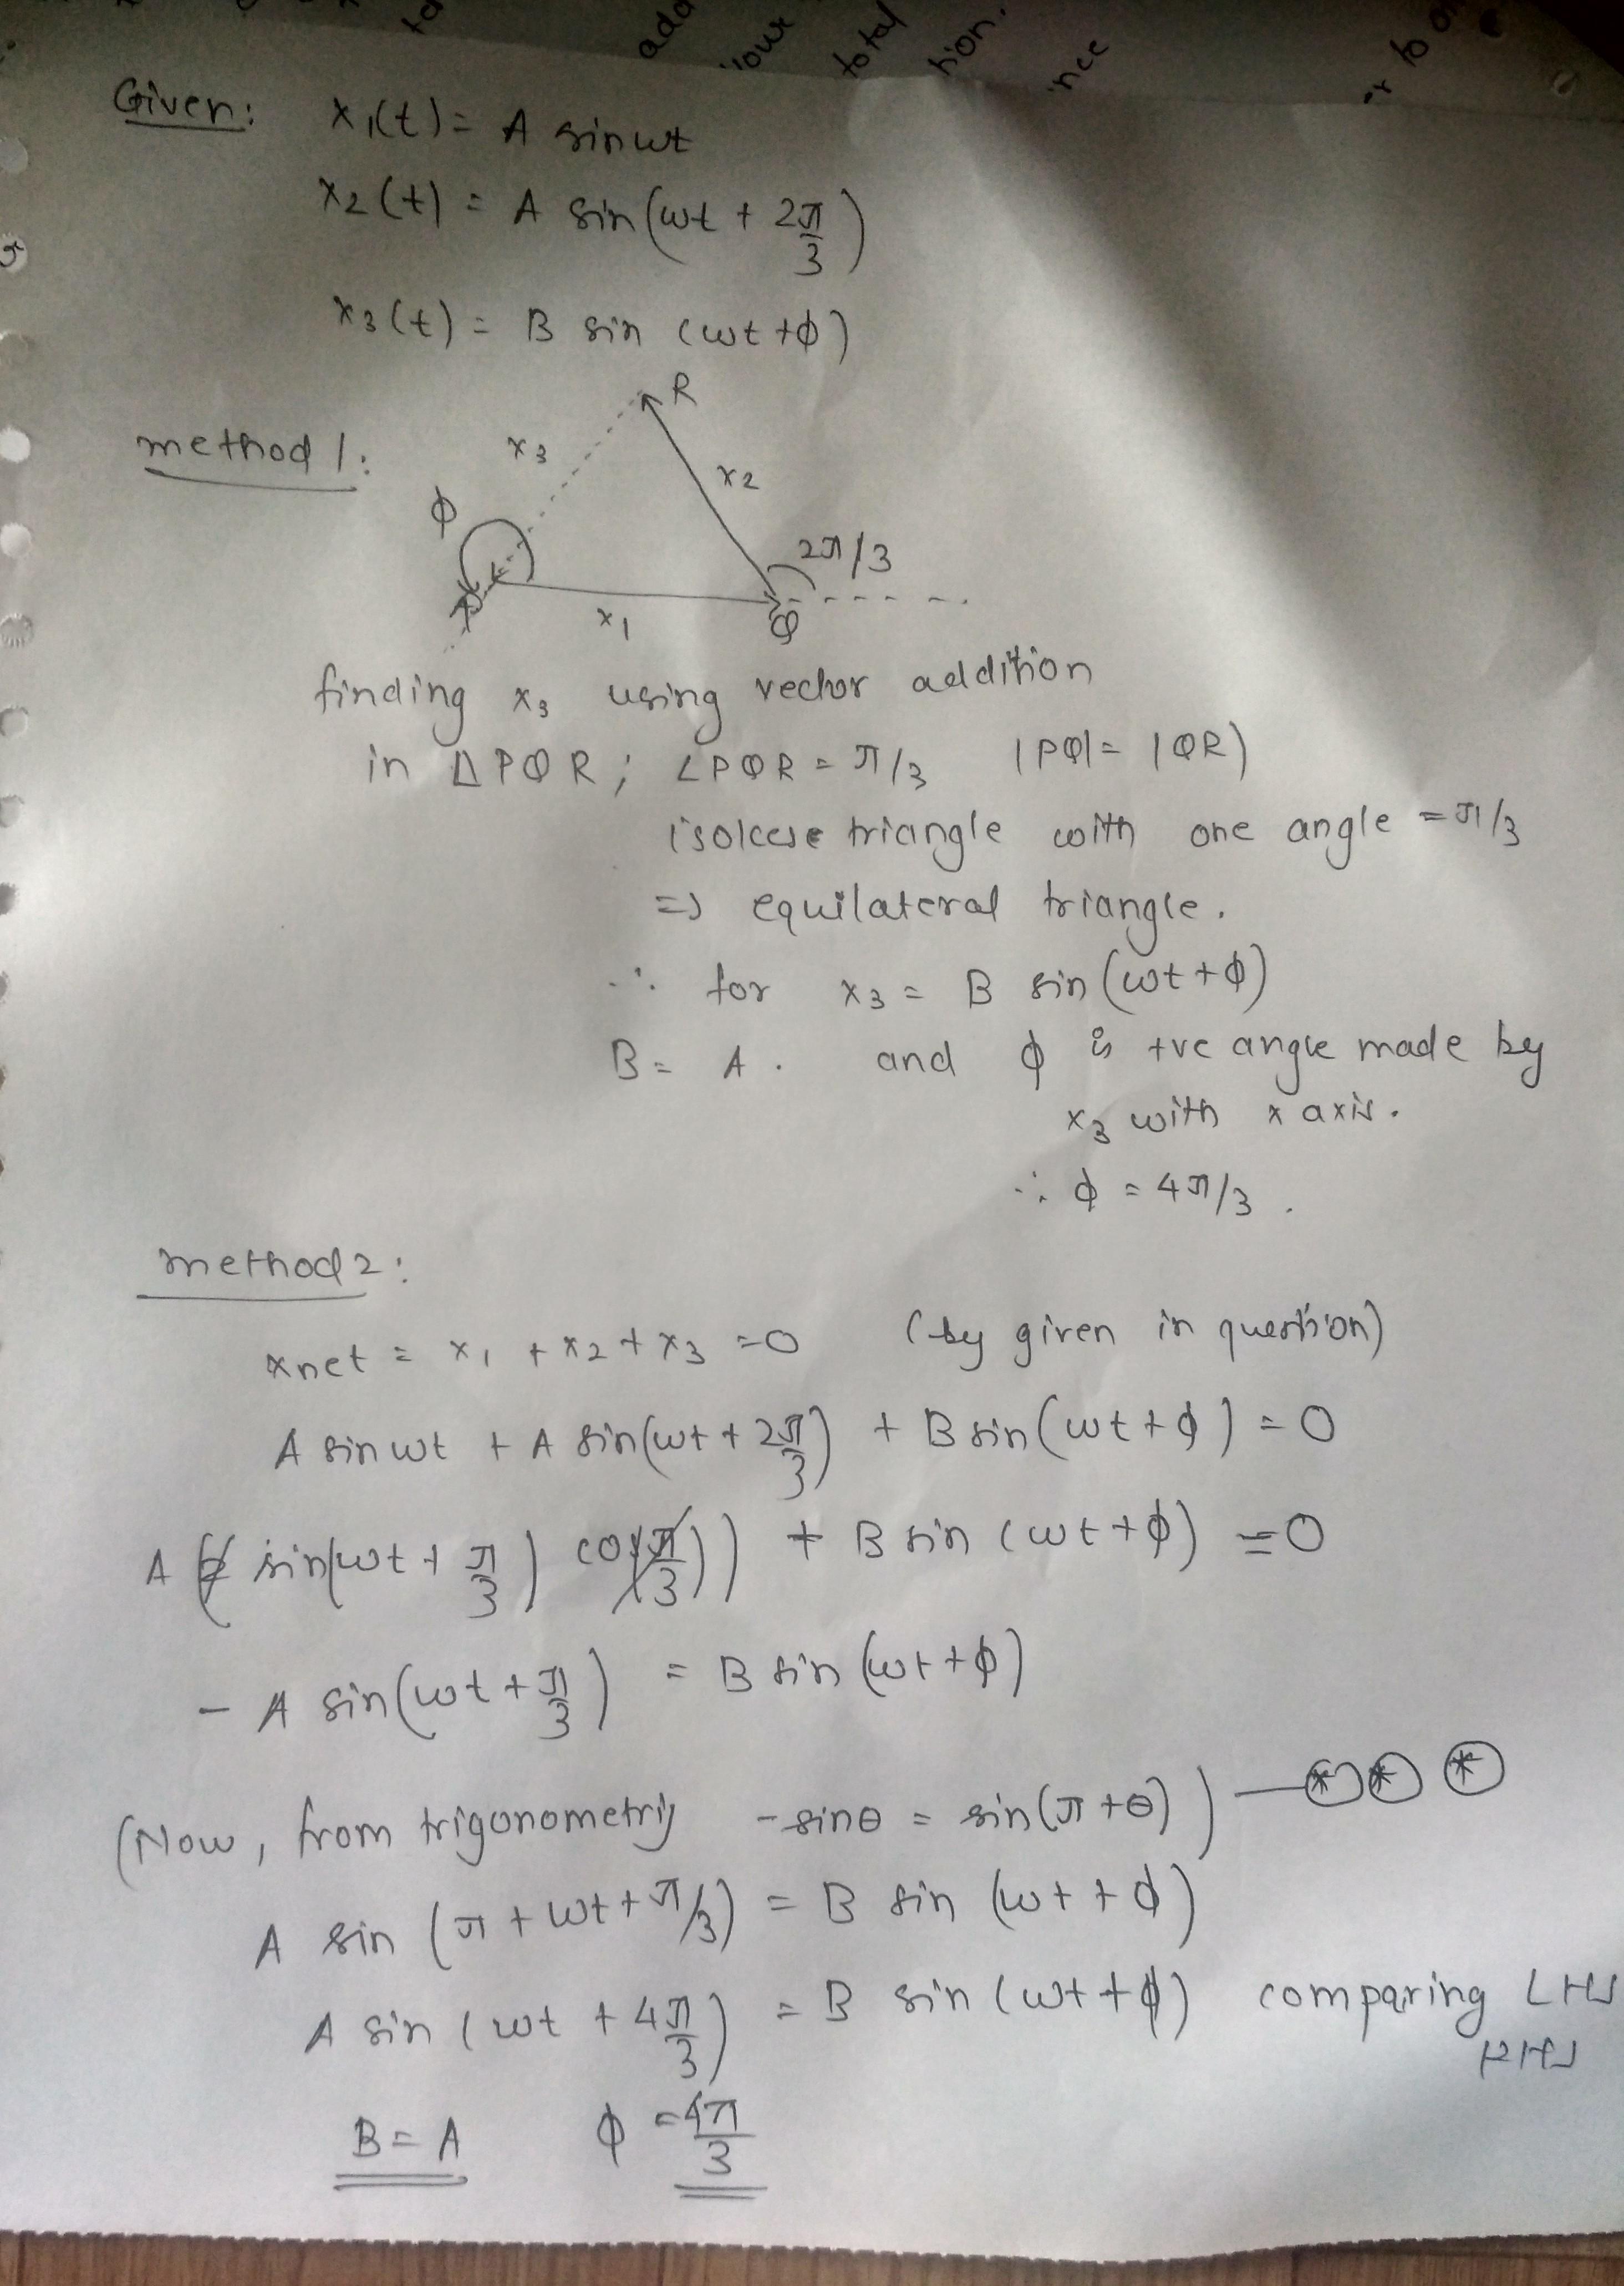 to
add
your
total
tion.
nce
to
Given: x₁(t) = A sinωt
x₂(t) = A sin(ωt + 2π/3)
x₃(t) = B sin (ωt +ϕ)
method 1:
R
x₃
x₂
ϕ
2π/3
P
x₁
Q
finding x₃ using vector addition
in ΔPQR; ∠PQR = π/3 |PQ| = |QR)
isolcese triangle with one angle = π/3
=> equilateral triangle.
∴ for x₃ = B sin (ωt +ϕ)
B = A. and ϕ is +ve angle made by
x₃ with x axis.
∴ ϕ = 4π/3.
method 2:
xnet = x₁ + x₂ + x₃ =0 (by given in question)
A sinωt + A sin(ωt + 2π/3) + B sin(ωt +ϕ) = 0
A (2 sin(ωt + π/3) cos(π/3)) + B sin (ωt +ϕ) =0
- A sin(ωt + π/3) = B sin (ωt +ϕ)
(Now, from trigonometry -sinθ = sin(π +θ)) —⊛⊛ ⊛
A sin (π + ωt + π/3) = B sin (ωt + ϕ)
A sin (ωt + 4π/3) = B sin (ωt +ϕ) comparing LHS
RHS
B = A ϕ = 4π/3